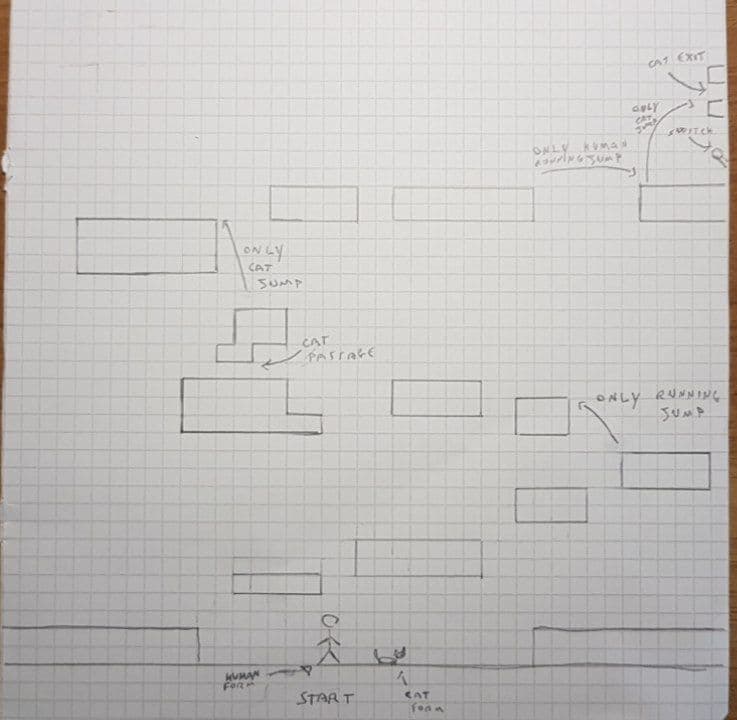 CAT EXIT
ONLY
CAT
JUMP
SWITCH
ONLY HUMAN
RUNNING JUMP
ONLY
CAT
JUMP
CAT
PASSAGE
ONLY RUNNING
JUMP
HUMAN
FORM
START
CAT
FORM